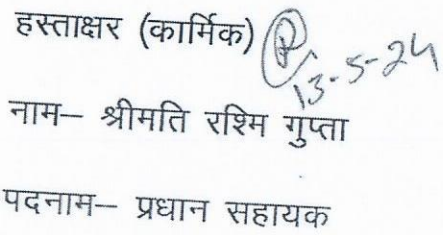 हस्ताक्षर (कार्मिक)
13-5-24
नाम– श्रीमति रश्मि गुप्ता
पदनाम– प्रधान सहायक